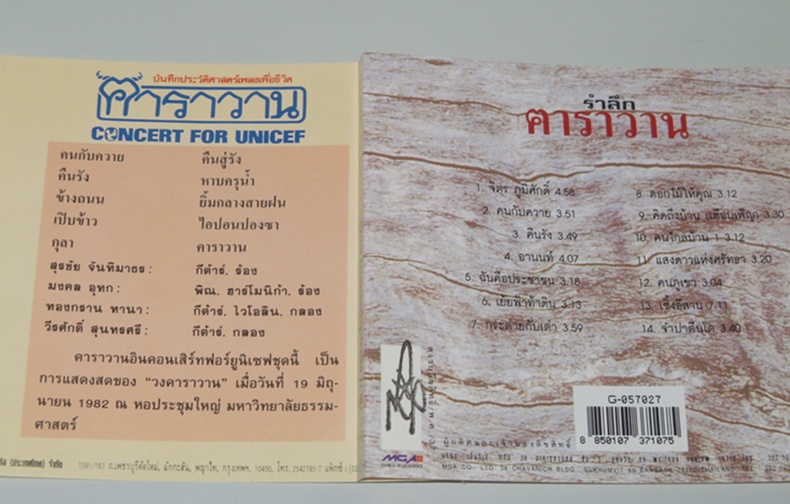 บันทึกประวัติศาสตร์เพลงเพื่อชีวิต
คาราวาน
CONCERT FOR UNICEF
คนกับควาย คืนสู่รัง
คืนรัง หาบครุน้ำ
ข้างถนน ยิ้มกลางสายฝน
เปิบข้าว ไอปอนปองซา
กุลา คาราวาน
สุรชัย จันทิมาธร: กีต้าร์, ร้อง
มงคล อุทก: พิณ, ฮาร์โมนิก้า, ร้อง
ทองกราน ทานา: กีต้าร์, ไวโอลิน, กลอง
วีรศักดิ์ สุนทรศรี: กีต้าร์, กลอง
คาราวานอินคอนเสิร์ทฟอร์ยูนิเซฟชุดนี้ เป็น
การแสดงสดของ "วงคาราวาน" เมื่อวันที่ 19 มิถุ-
นายน 1982 ณ หอประชุมใหญ่ มหาวิทยาลัยธรรม-
ศาสตร์
(ประเทศไทย) จำกัด 1091/183 ถ.เพชรบุรีตัดใหม่, มักกะสัน, พญาไท, กรุงเทพฯ. 10400, โทร. 2542785-7 แฟ็กซ์ : (02
รำลึก
คาราวาน
1. จิตร ภูมิศักดิ์ 4.58
2. คนกับควาย 3.51
3. คืนรัง 3.49
4. อานนท์ 4.07
5. ฉันคือประชาชน 3.18
6. เย้ยฟ้าท้าดิน 3.13
7. กระต่ายกับเต่า 3.59
8. ดอกไม้ให้คุณ 3.12
9. คิดถึงบ้าน (เดือนเพ็ญ) 3.30
10. คนไกลบ้าน 1 3.12
11. แสงดาวแห่งศรัทธา 3.20
12. คนภูเขา 3.04
13. เซิ้งอีสาน 7.11
14. จำปาตีนโต 3.40
G-057027
8 850107 371075
ผู้ผลิตและเจ้าของลิขสิทธิ์
MGA
MGA CO., LTD. 38 CHAVANICH BLDG., SUKHUMVIT 69 BANGKOK